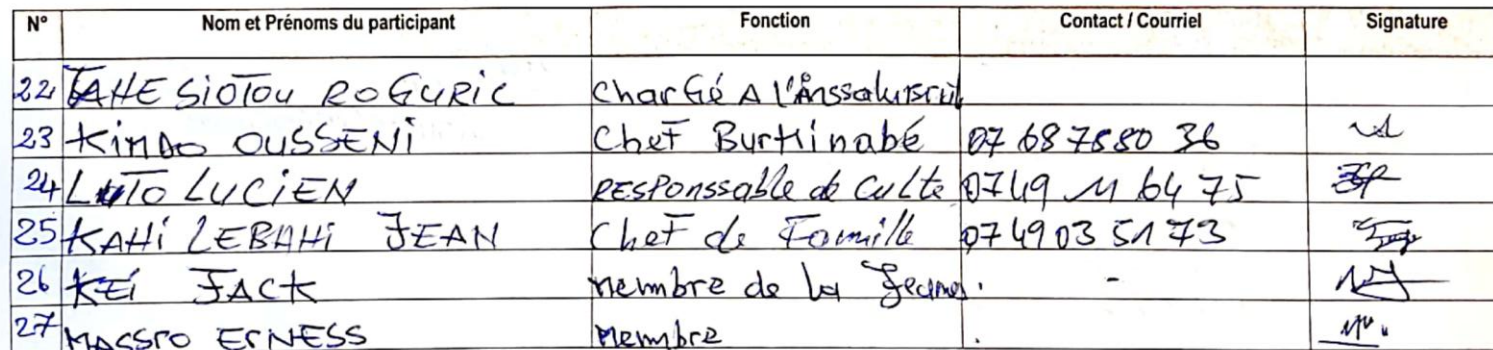 N° Nom et Prénoms du participant Fonction Contact / Courriel Signature
22 TAHE SIOTOU ROGURIC Chargé A l'Anssalubrité
23 KINDO OUSSENI Chef Burkinabé 07 68 78 80 36
24 LUTO LUCIEN RESPonssable de Culte 07 49 11 64 75
25 KAHI ZEBAHI JEAN Chef de Famille 07 49 03 51 73
26 KEI JACK membre de la Jeunes. -
27 MASSTO ERNESS Membre .